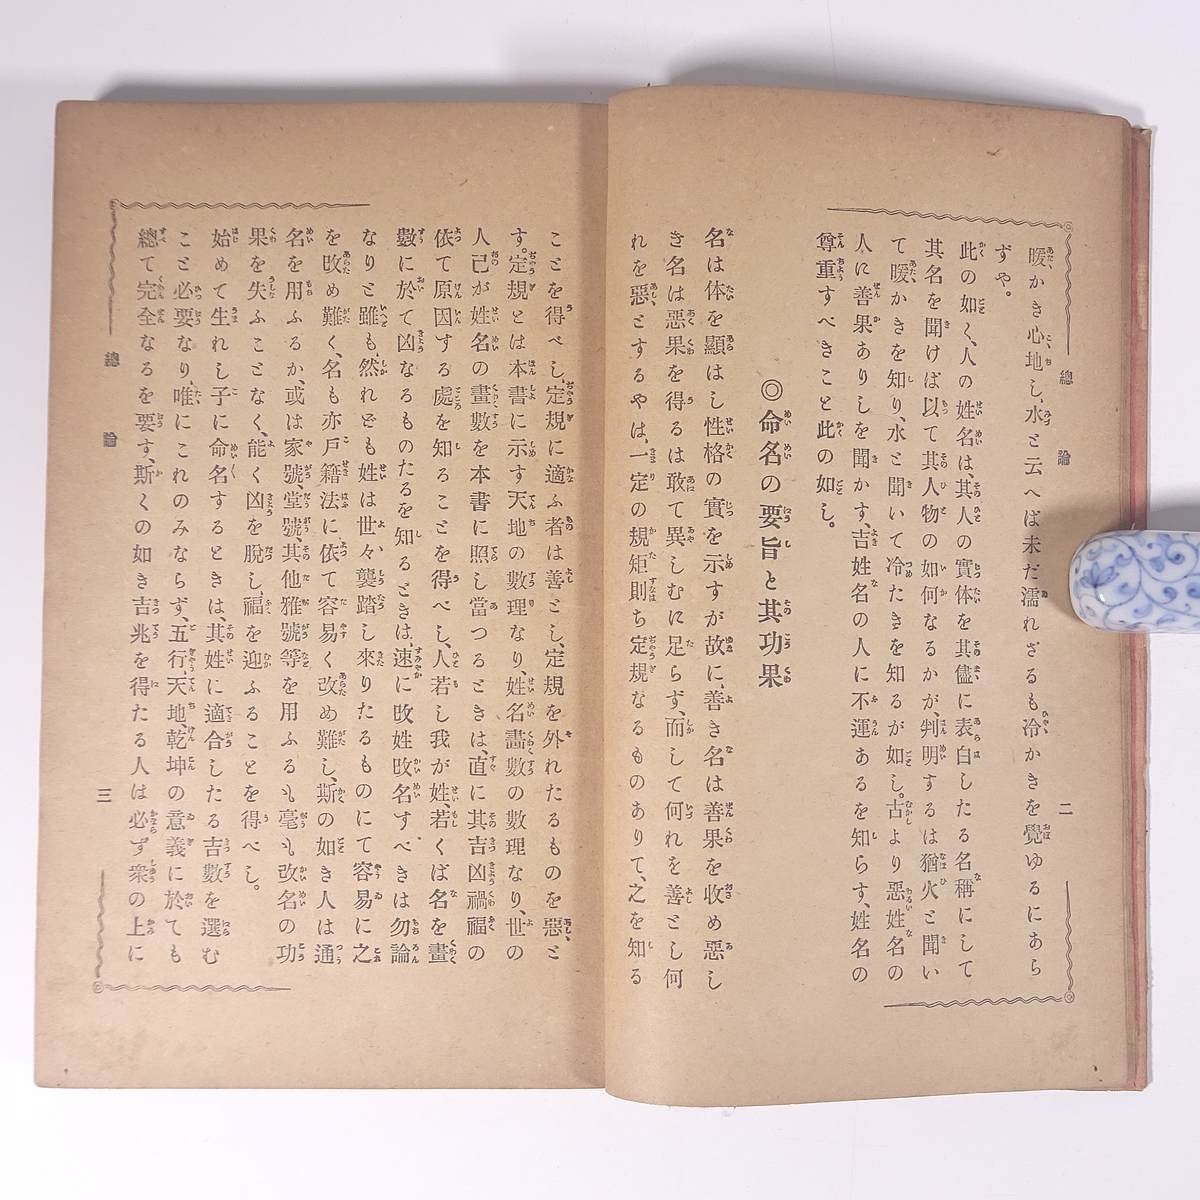 總論
二
暖かき心地し、水と云へば未だ濡れざるも冷かきを覺ゆるにあら
ずや。
此の如く、人の姓名は、其人の實体を其儘に表白したる名稱にして
其名を聞けば以て其人物の如何なるかが、判明するは猶火と聞い
て暖かきを知り、水と聞いて冷たきを知るが如し。古より惡姓名の
人に善果ありしを聞かす、吉姓名の人に不運あるを知らす、姓名の
尊重すべきこと此の如し。
◎命名の要旨と其功果
名は体を顯はし性格の實を示すが故に、善き名は善果を收め惡し
き名は惡果を得るは敢て異しむに足らず、而して何れを善とし何
れを惡、とするやは、一定の規矩則ち定規なるものありて、之を知る
ことを得べし、定規に適ふ者は善とし、定規を外れたるものを惡、と
す。定規とは本書に示す天地の數理なり、姓名畵數の數理なり、世の
人己が姓名の畫數を本書に照し當つるときは、直に其吉凶禍福の
依て原因する處を知ることを得べし、人若し我が姓、若くば名を畫
數に於て凶なるものたるを知るときは、速に改姓改名すべきは勿論
なりと雖も、然れども姓は世々襲踏し來りたるものにて容易に之
を改め難く、名も亦戸籍法に依て容易く改め難し、斯の如き人は通
名を用ふるか、或は家號、堂號、其他雅號等を用ふるも毫も改名の功
果を失ふことなく、能く凶を脱し、福を迎ふることを得べし。
始めて生れし子に命名するときは、其姓に適合したる吉數を選む
こと必要なり、唯にこれのみならず、五行、天地、乾坤の意義に於ても
總て完全なるを要す、斯くの如き吉兆を得たる人は必ず衆の上に
總論
三